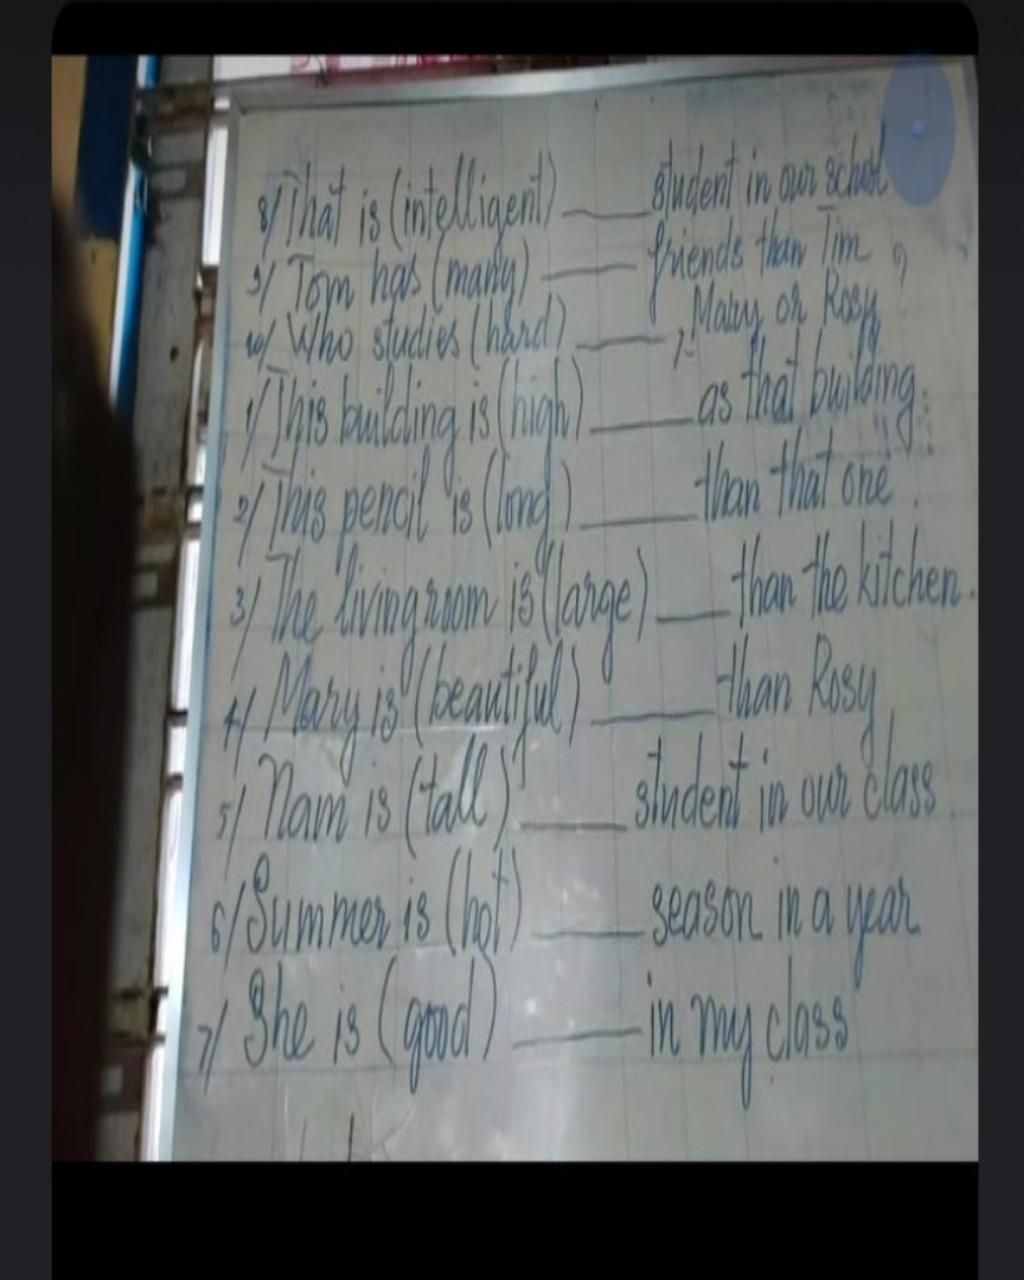 8/ That is (intelligent) ____ student in our school
9/ Tom has (many) ____ friends than Tim
10/ Who studies (hard) ____, Mary or Rosy ?
1/ This building is (high) ____ as that building.
2/ This pencil is (long) ____ than that one.
3/ The living room is (large) ____ than the kitchen.
4/ Mary is (beautiful) ____ than Rosy
5/ Nam is (tall) ____ student in our class
6/ Summer is (hot) ____ season in a year
7/ She is (good) ____ in my class